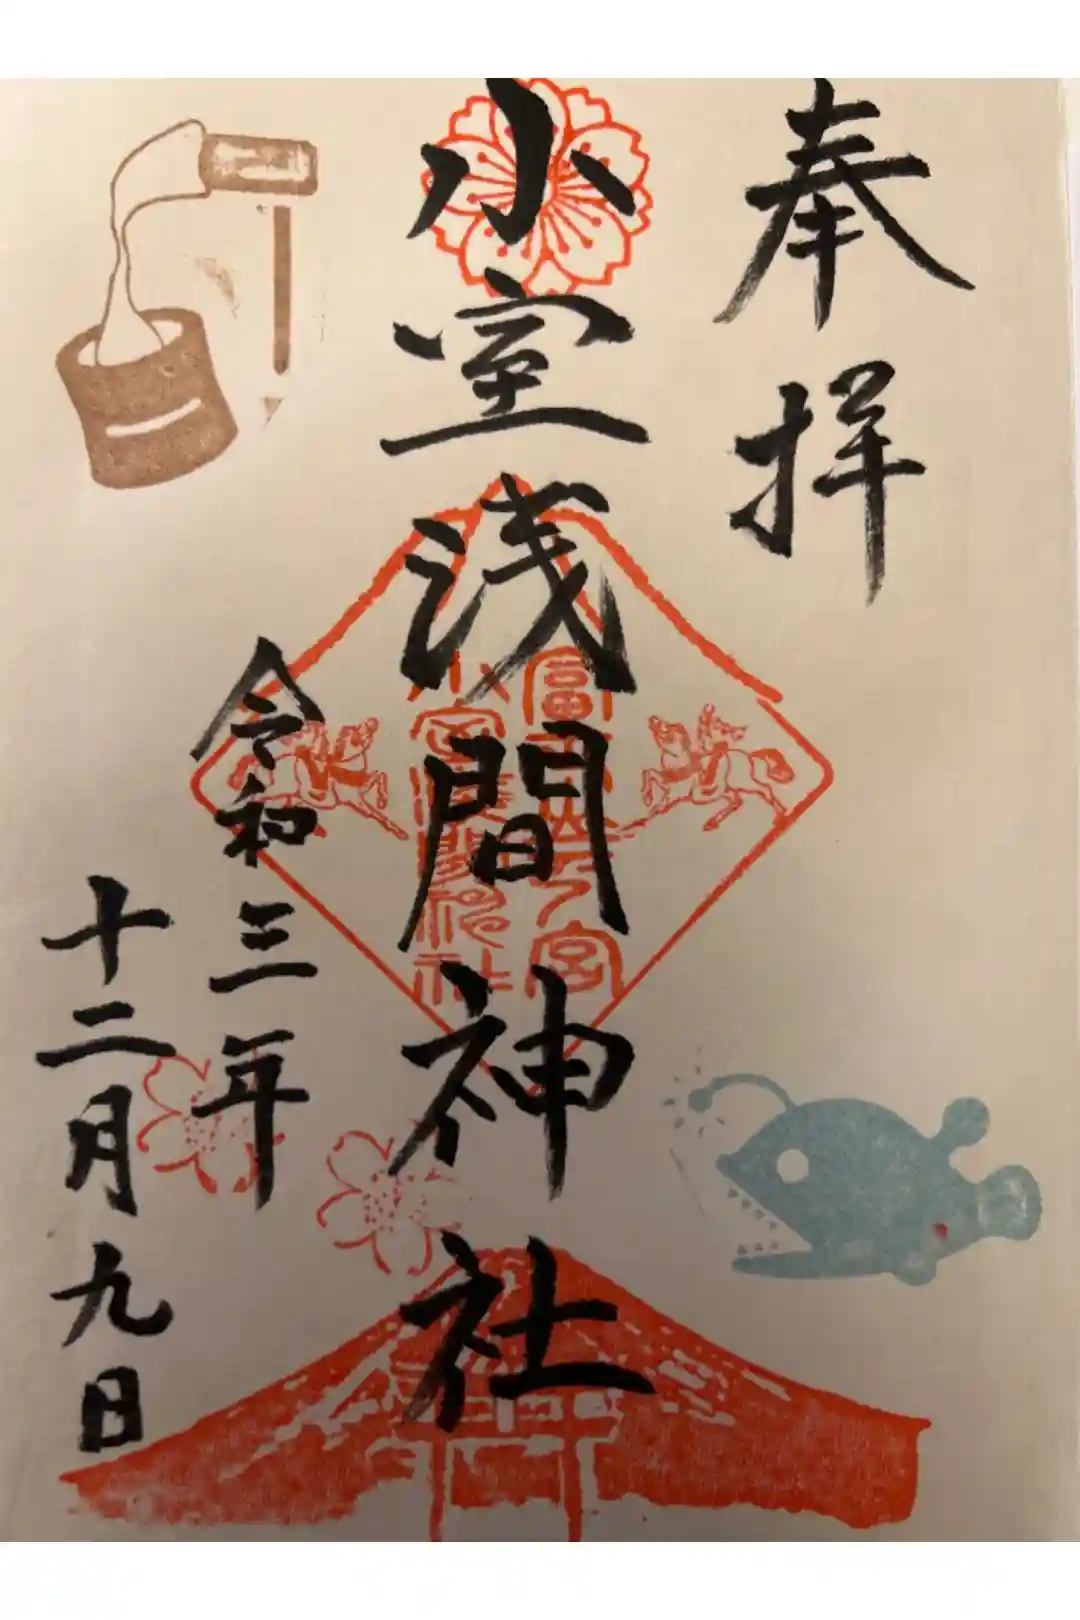 奉拝
小室浅間神社
冨士山下宮
小室浅間神社
令和三年
十二月九日